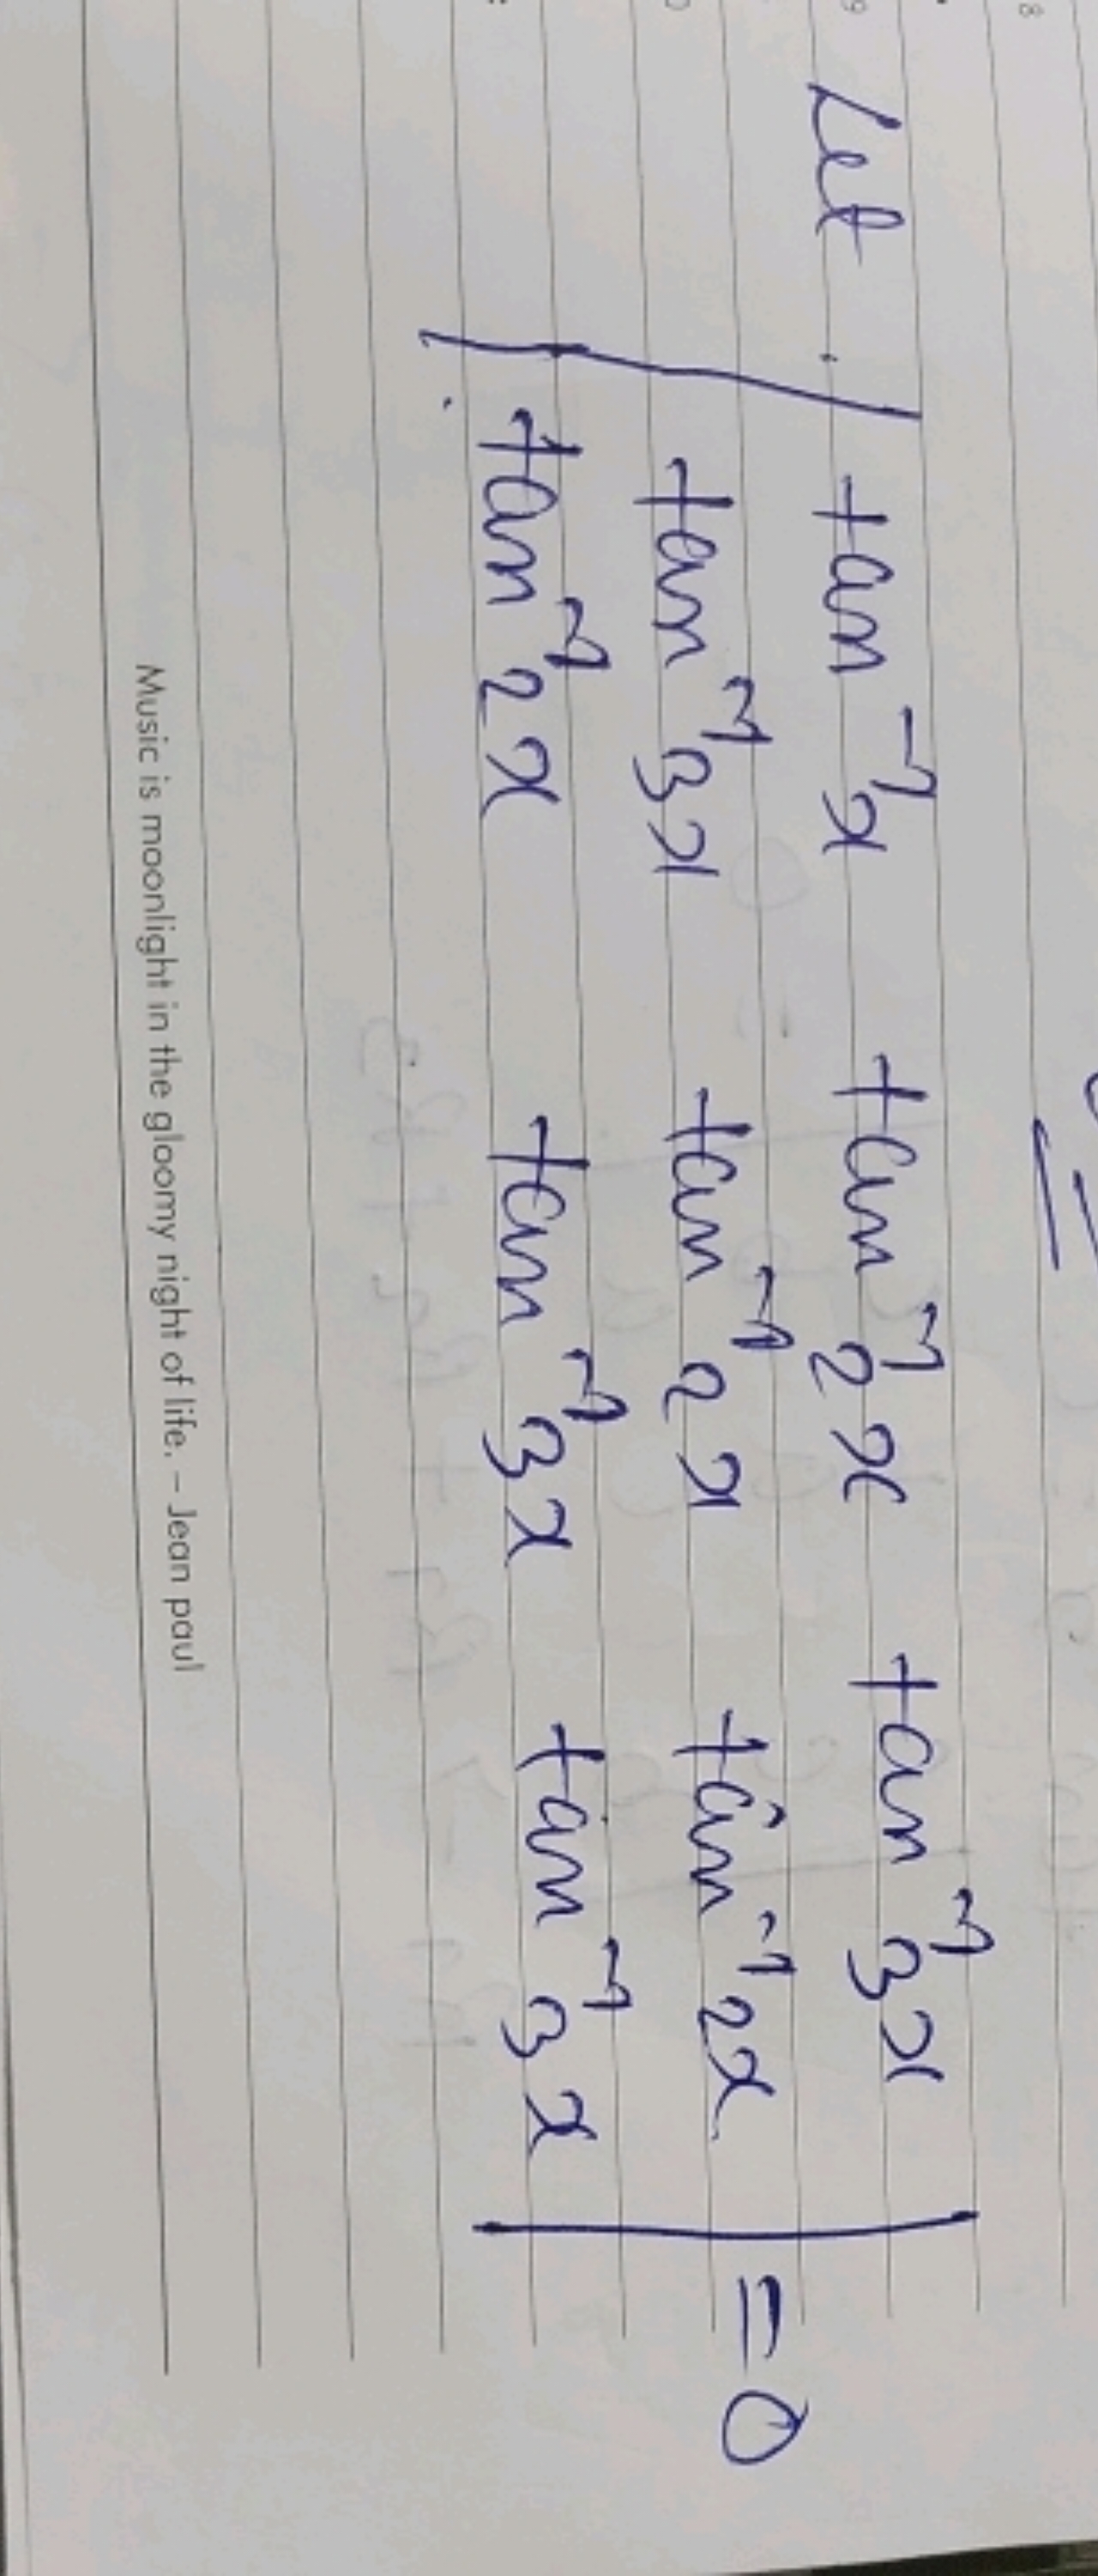 Let
| tan⁻¹x tan⁻¹2x tan⁻¹3x |
| tan⁻¹3x tan⁻¹2x tan⁻¹2x | = 0
| tan⁻¹2x tan⁻¹3x tan⁻¹3x |
Music is moonlight in the gloomy night of life. – Jean paul